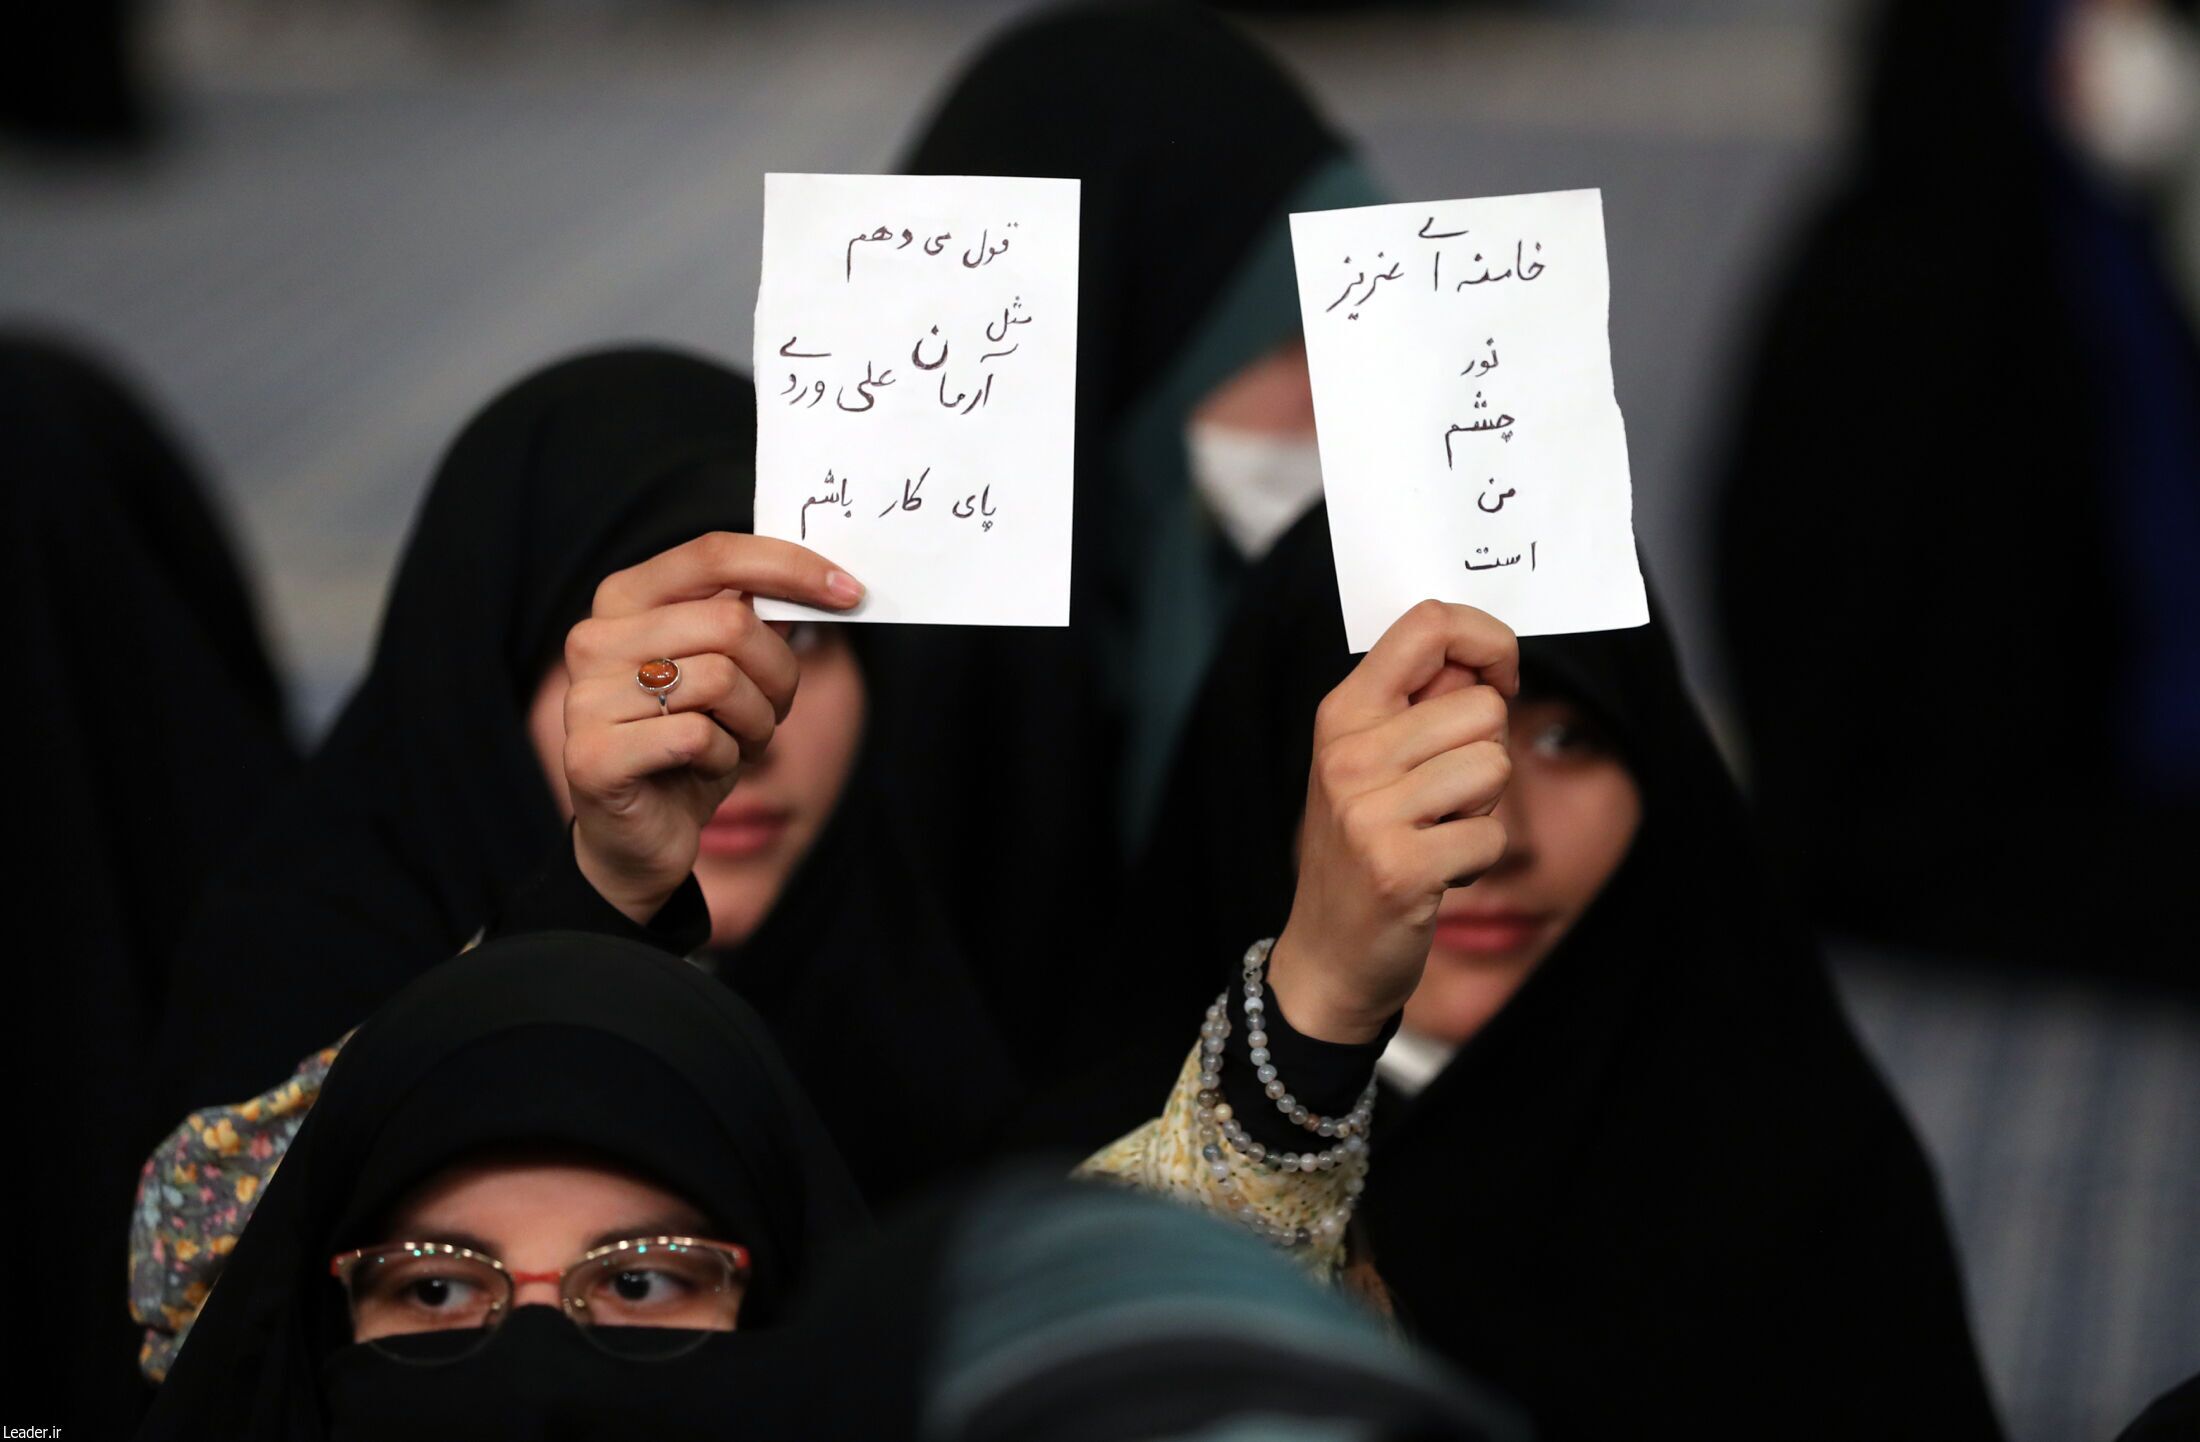 خامنه ای عزیز
نور
چشم
من
است
قول می دهم
مثل
آرمان علی وردی
پای کار باشم
Leader.ir